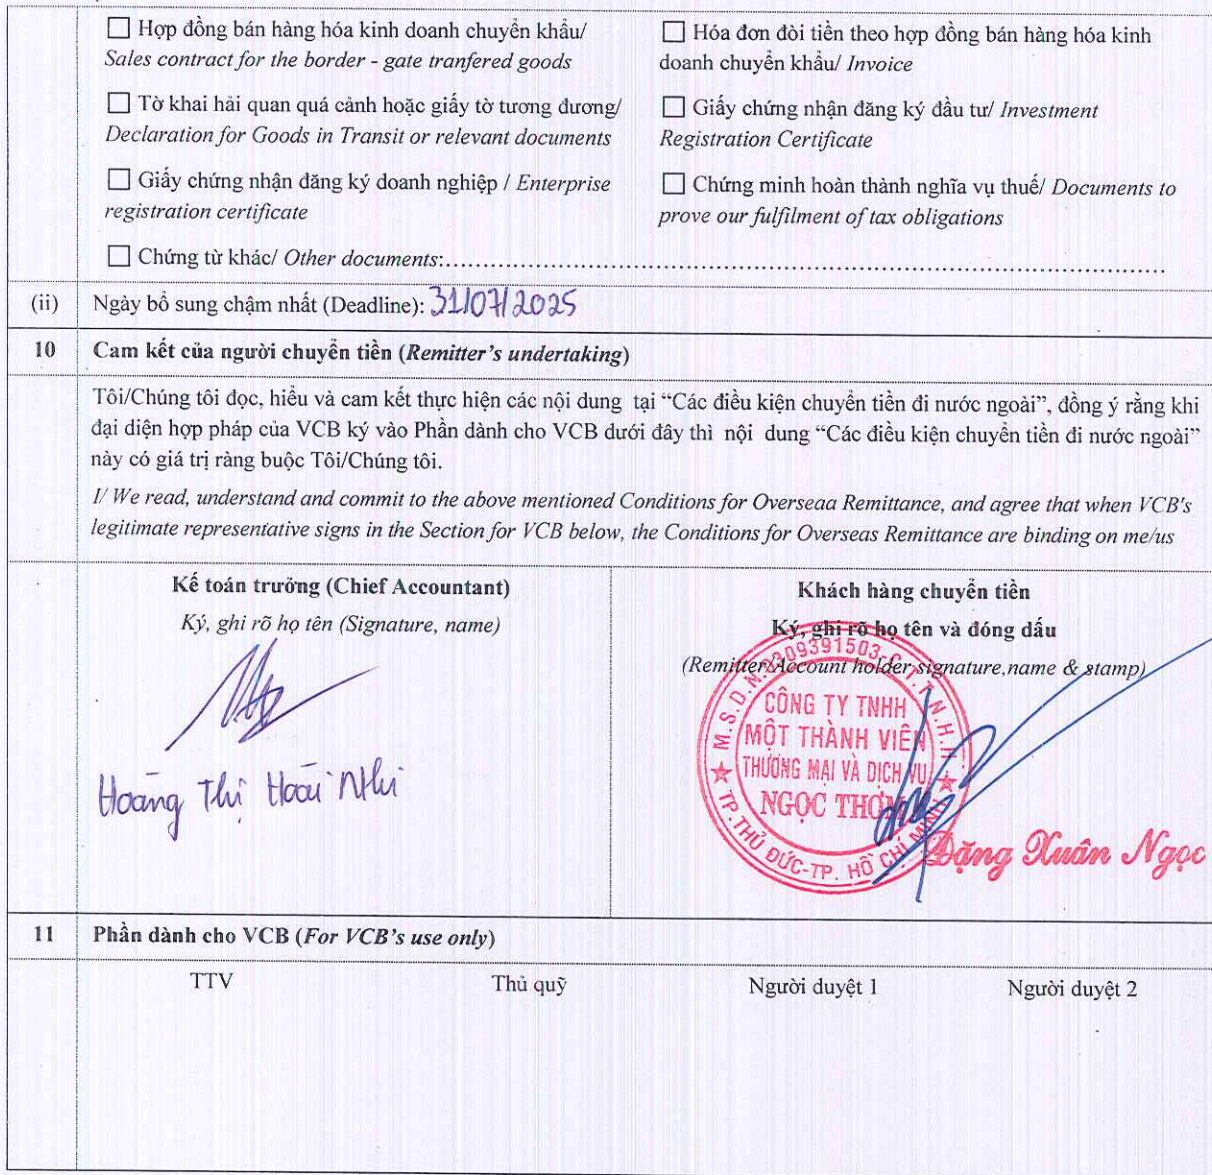 ☐ Hợp đồng bán hàng hóa kinh doanh chuyển khẩu/
Sales contract for the border - gate tranfered goods
☐ Hóa đơn đòi tiền theo hợp đồng bán hàng hóa kinh
doanh chuyển khẩu/ Invoice
☐ Tờ khai hải quan quá cảnh hoặc giấy tờ tương đương/
Declaration for Goods in Transit or relevant documents
☐ Giấy chứng nhận đăng ký đầu tư/ Investment
Registration Certificate
☐ Giấy chứng nhận đăng ký doanh nghiệp / Enterprise
registration certificate
☐ Chứng minh hoàn thành nghĩa vụ thuế/ Documents to
prove our fulfilment of tax obligations
☐ Chứng từ khác/ Other documents:..........
(ii) Ngày bổ sung chậm nhất (Deadline): 31/07/2025
10 Cam kết của người chuyển tiền (Remitter's undertaking)
Tôi/Chúng tôi đọc, hiểu và cam kết thực hiện các nội dung tại “Các điều kiện chuyển tiền đi nước ngoài”, đồng ý rằng khi
đại diện hợp pháp của VCB ký vào Phần dành cho VCB dưới đây thì nội dung “Các điều kiện chuyển tiền đi nước ngoài”
này có giá trị ràng buộc Tôi/Chúng tôi.
I/ We read, understand and commit to the above mentioned Conditions for Overseaa Remittance, and agree that when VCB's
legitimate representative signs in the Section for VCB below, the Conditions for Overseas Remittance are binding on me/us
Kế toán trưởng (Chief Accountant)
Ký, ghi rõ họ tên (Signature, name)
Hoàng Thị Hoài Nhi
Khách hàng chuyển tiền
Ký, ghi rõ họ tên và đóng dấu
(Remitter/Account holder signature,name & stamp)
M.S.D.N:0309391503-C.T.T.N.H.H
CÔNG TY TNHH
MỘT THÀNH VIÊN
THƯƠNG MẠI VÀ DỊCH VỤ
NGỌC THƠM
TP.THỦ ĐỨC-TP. HỒ CHÍ MINH
Đặng Xuân Ngọc
11 Phần dành cho VCB (For VCB's use only)
TTV Thủ quỹ Người duyệt 1 Người duyệt 2